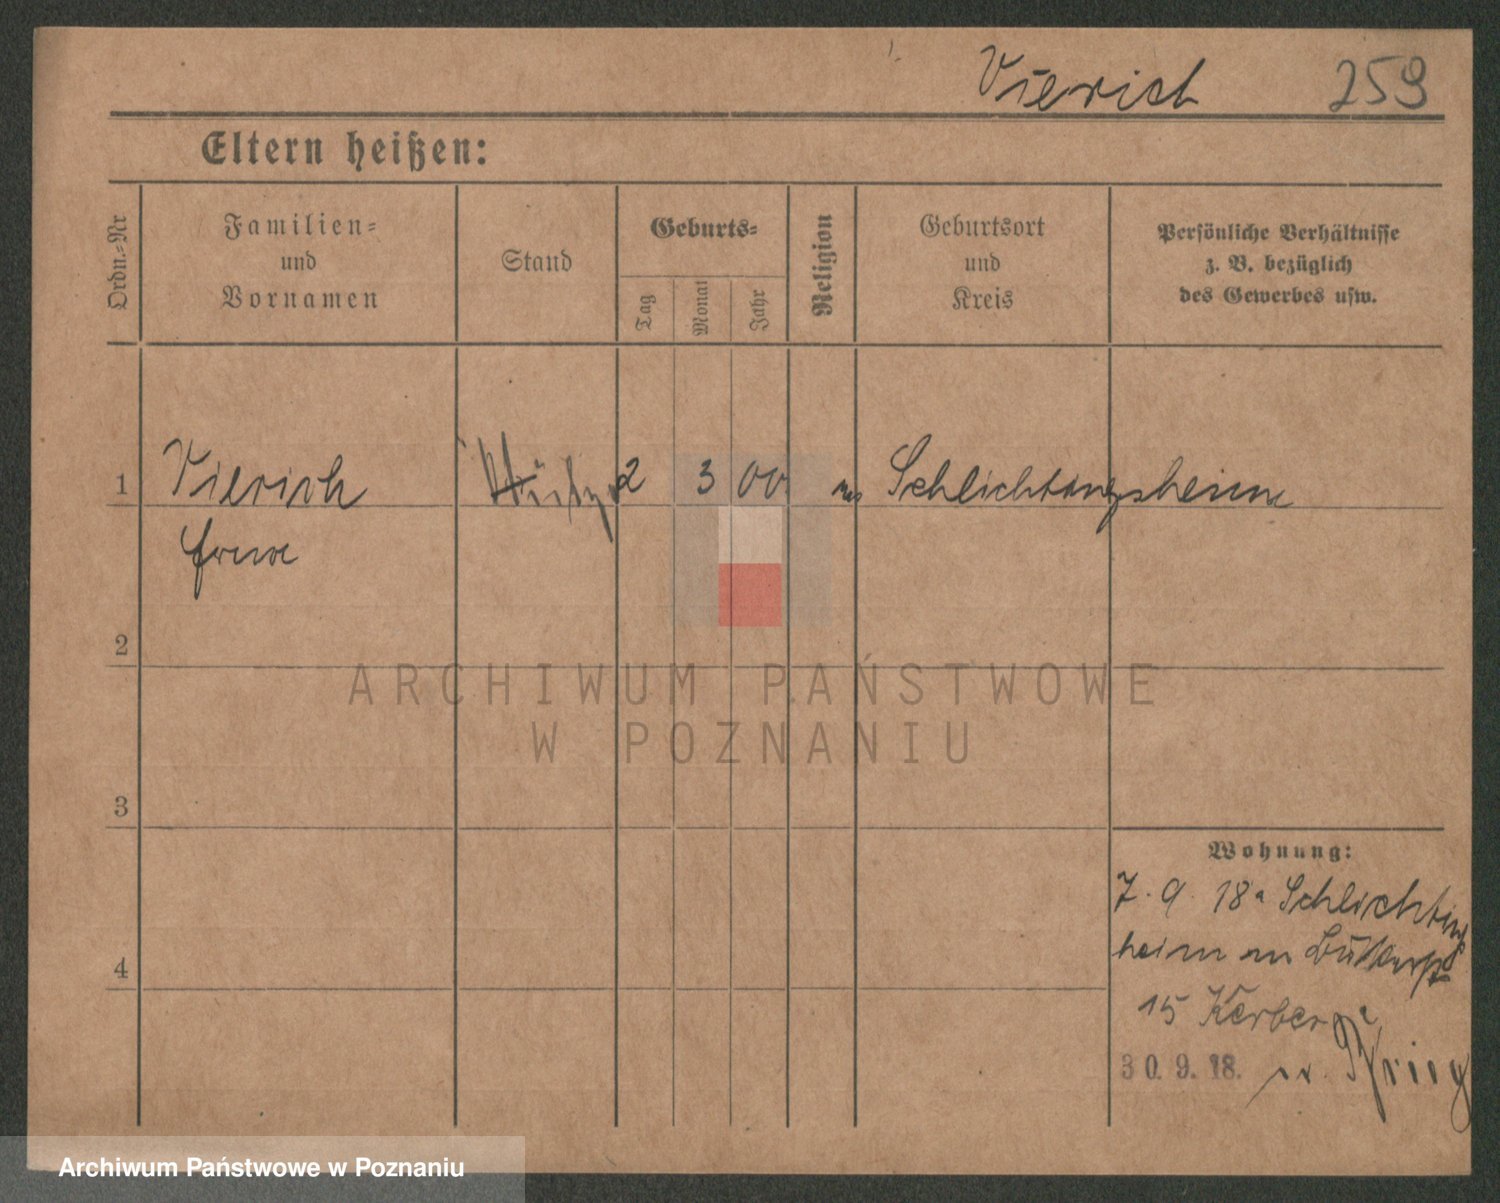 Vierich 259
Eltern heißen:
Ordn.-Nr
Familien-
und
Vornamen
Stand
Geburts-
Tag
Monat
Jahr
Religion
Geburtsort
und
Kreis
Persönliche Verhältnisse
z. B. bezüglich
des Gewerbes usw.
1 Vierich 2 3 00 Schlichtingsheim
2
3
4
Wohnung:
7. 9. 18 Schlichtings
heim
15 Kerber
30.9.18.
ARCHIWUM PAŃSTWOWE
W POZNANIU
Archiwum Państwowe w Poznaniu